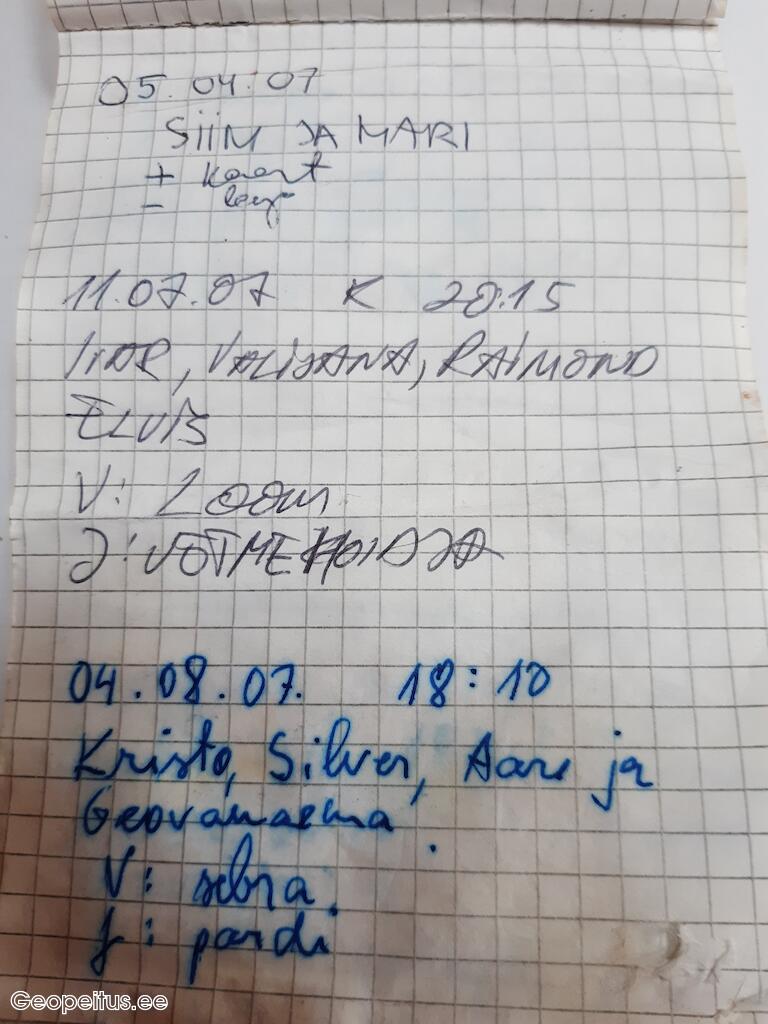 05.04.07
SIIM JA MARI
+ kaart
-
11.07.07 K 20:15
RAIMOND
ELVIS
V: Loom
J: VÕTMEHOIDJA
04.08.07. 18:10
Kristo, Silver, Aare ja
Geovanaema.
V: sebra.
J: pardi
Geopeitus.ee